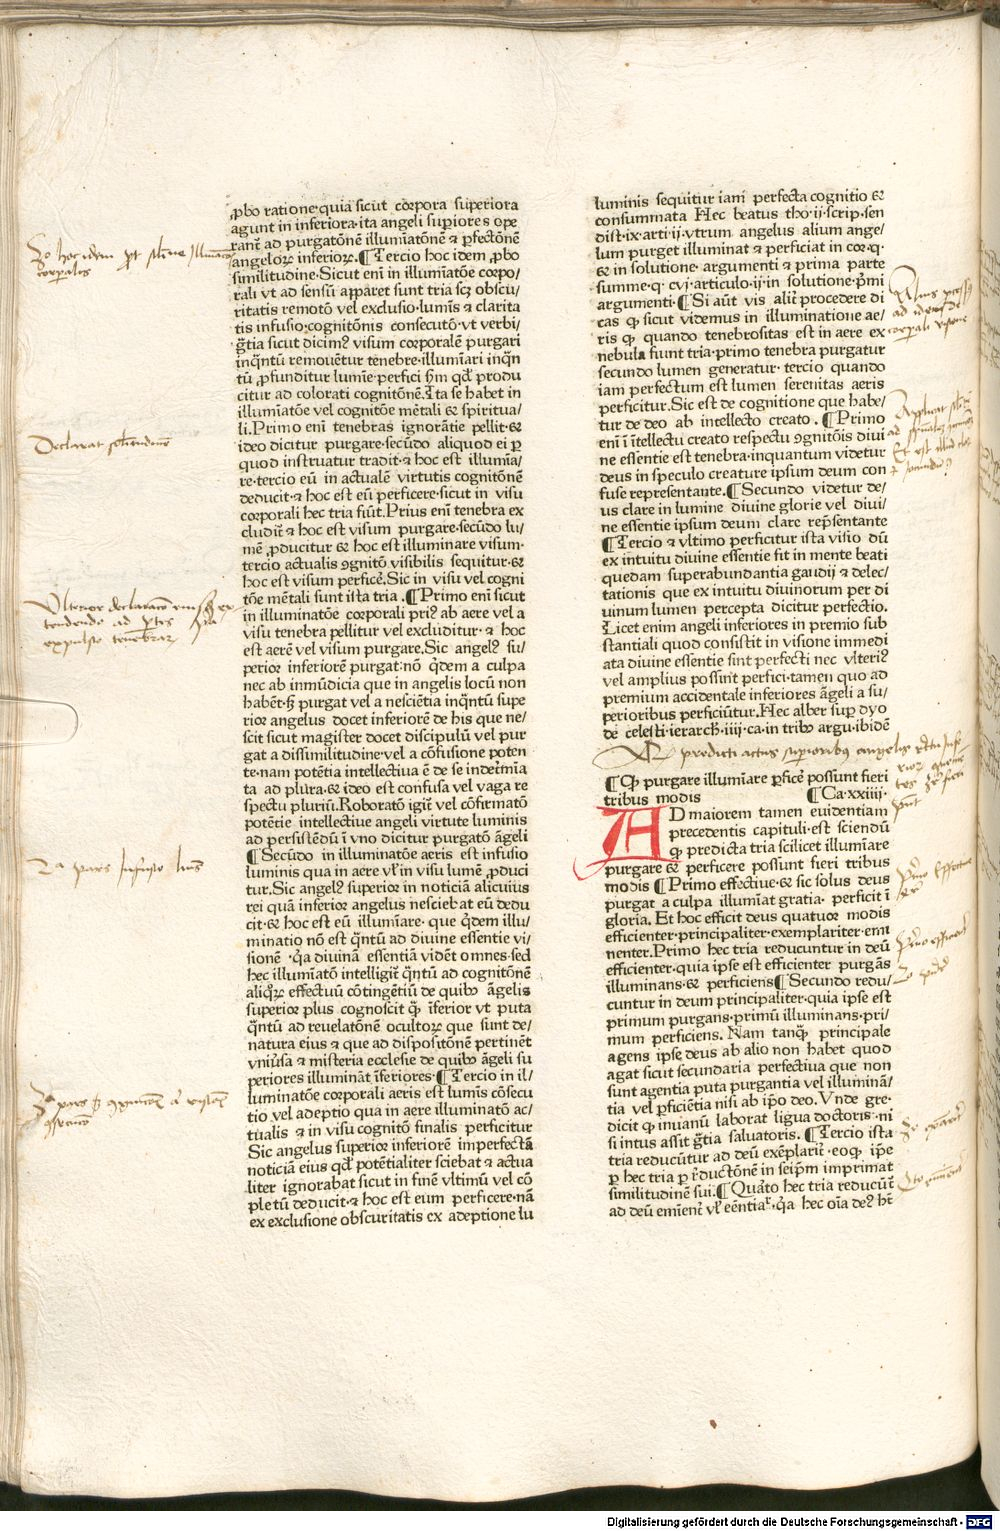 ꝓbo ratione·quia sicut corpora superiora
agunt in inferiora·ita angeli supiores ope
rant᷑ ad purgatōnē illumiatōnē ⁊ ꝑfectōnē
angeloꝝ inferioꝝ.¶Tercio hoc idem ꝓbo
similitudine·Sicut eni in illumiatōe corpo/
rali vt ad sensū apparet sunt tria scꝫ obscu/
ritatis remotō vel exclusio·lumis ⁊ clarita
tis infusio·cognitōnis consecutō·vt verbi/
gr̄tia sicut dicimꝰ visum corporalē purgari
inqn̄tū remouētur tenebre·illumīari inqn̄
tū ꝓfunditur lumīe·perfici ẜm qd̄ produ
citur ad colorati cognitōnē.Ita se habet in
illumiatōe vel cognitōe mētali ⁊ spiritua/
li.Primo enī tenebras ignorātie pellit·⁊
ideo dicitur purgare·secūdo aliquod ei ꝑ
quod instruatur tradit·⁊ hoc est illumīa/
re·tercio eū in actualē virtutis cognitōnē
deducit·⁊ hoc est eū perficere·sicut in visu
corporali hec tria fiūt.Prius enī tenebra ex
cludit᷑ ⁊ hoc est visum purgare·secūdo lu/
mē ꝓducitur ⁊ hoc est illuminare visum·
tercio actualis ꝯgnitō visibilis sequitur·⁊
hoc est visum perficē.Sic in visu vel cogni
tōe mētali sunt ista tria.¶Primo enī sicut
in illuminatōe corporali priꝰ ab aere vel a
visu tenebra pellitur vel excluditur·⁊ hoc
est aerē vel visum purgare.Sic angelꝰ su/
perior inferiorē purgat·nō qͥdem a culpa
nec ab inmūdicia que in angelis locū non
habēt·ẜ purgat vel a nesciētia inqn̄tū supe
rior angelus docet inferiorē de his que ne/
scit sicut magister docet discipulū vel pur
gat a dissimilitudine·vel a cōfusione poten
te·nam potētia intellectiua ē de se indet᷑mīa
ta ad plura·⁊ ideo est confusa vel vaga re
spectu pluriū.Roboratō igit᷑ vel cōfirmatō
potētie intellectiue angeli virtute luminis
ad persistēdū ī vno dicitur purgatō āgeli
¶Secūdo in illuminatōe aeris est infusio
luminis qua in aere vl̓ in visu lumē ꝓduci
tur.Sic angelꝰ superior in noticiā alicuius
rei quā inferior angelus nesciebat eū dedu
cit·⁊ hoc est eū illumīare· que qͥdem illu/
minatio nō est qn̄tū ad diuine essentie vi/
sionē ·qͣ diuinā essentiā vidēt omnes·sed
hec illumiatō intelligit᷑ qn̄tū ad cognitōnē
aliqͦꝝ effectuū cōtingētiū de quibꝰ āgelis
superior plus cognoscit qͣ̄ īferior vt puta
qn̄tū ad reuelatōnē ocultoꝝ que sunt de/
natura eius ⁊ que ad dispositōnē pertinēt
vniūsa ⁊ misteria ecclesie de quibꝰ āgeli su
periores illumināt īferiores·¶Tercio in il/
luminatōe corporali aeris est lumīs cōsecu/
tio vel adeptio qua in aere illuminatō ac/
tualis ⁊ in visu cognitō finalis perficitur
Sic angelus superior inferiorē imperfectā
noticiā eius qd̄ potētialiter sciebat ⁊ actua
liter ignorabat sicut in finē vltimū vel cō
pletū deducit·⁊ hoc est eum perficere·nā
ex exclusione obscuritatis ex adeptione lu
luminis sequitur iam perfecta cognitio ⁊
consummata Hec beatus tho·ij·scrip·sen
dist·ix·arti·ij·vtrum angelus alium ange/
lum purget illuminat ⁊ perficiat in cor·q·
⁊ in solutione· argumenti ⁊ prima parte
summe·q· cvj·articulo·ij·in solutione·pͥmi
argumenti·¶Si aūt vis alit᷑ procedere di
cas ꝙ sicut videmus in illuminatione ae/
ris ꝙ quando tenebrositas est in aere ex
nebula fiunt tria·primo tenebra purgatur
secundo lumen generatur· tercio quando
iam perfectum est lumen serenitas aeris
perficitur.Sic est de cognitione que habe/
tur de deo ab intellecto creato .¶Primo
enī ī ītellectu creato respectu ꝯgnitōis diui
ne essentie est tenebra·inquantum videtur
deus in speculo creature ipsum deum con
fuse representante.¶Secundo videtur de/
us clare in lumine diuine glorie vel diui/
ne essentie ipsum deum clare rep̄sentante
¶Tercio ⁊ vltimo perficitur ista visio dū
ex intuitu diuine essentie fit in mente beati
quedam superabundantia gaudij ⁊ delec/
tationis que ex intuitu diuinorum per di
uinum lumen percepta dicitur perfectio.
Licet enim angeli inferiores in premio sub
stantiali quod consistit in visione immedi
ata diuine essentie sint perfecti nec vlteriꝰ
vel amplius possint perfici·tamen quo ad
premium accidentale inferiores āgeli a su/
perioribus perficiūtur.Hec alber sup dyo
de celesti·ierarch·iiij·ca·in tribꝰ argu·ibidē
¶Qꝙ purgare illumīare ꝑficē possunt fieri
tribus modis ¶Ca·xxiiij·
AD maiorem tamen euidentiam
precedentis capituli·est sciendū
ꝙ predicta tria scilicet illumīare
purgare ⁊ perficere possunt fieri tribus
modis ¶Primo effectiue·⁊ sic solus deus
purgat a culpa illumīat gratia· perficit ī
gloria. Et hoc efficit deus quatuor modis
efficienter·principaliter·exemplariter·emi
nenter.Primo hec tria reducuntur in deū
efficienter·quia ipse est efficienter purgās
illuminans·⁊ perficiens¶Secundo redu/
cuntur in deum principaliter·quia ipse est
primum purgans·primū illuminans·pri/
mum perficiens. Nam tanqͣ̄ principale
agens ipse deus ab alio non habet quod
agat sicut secundaria perfectiua que non
sunt agentia puta purgantia vel illuminā/
tia vel ꝑficiētia nisi ab ip̄o deo.Vnde gre/
dicit ꝙ inuanū laborat ligua doctoris·ni
si intus assit gr̄tia saluatoris. ¶Tercio ista
tria reducūtur ad deū exēplarit᷑·eoꝙ ip̄e
ꝑ hec tria ꝑ r̓ductōnē in seip̄m imprimat
similitudinē sui.¶Quarto hec tria reducūt᷑
ad deū emīent᷑ vl̓ eēntiar̓·qͣ hec oīa deꝰ hꝫ
Digitalisierung gefördert durch die Deutsche Forschungsgemeinschaft - DFG